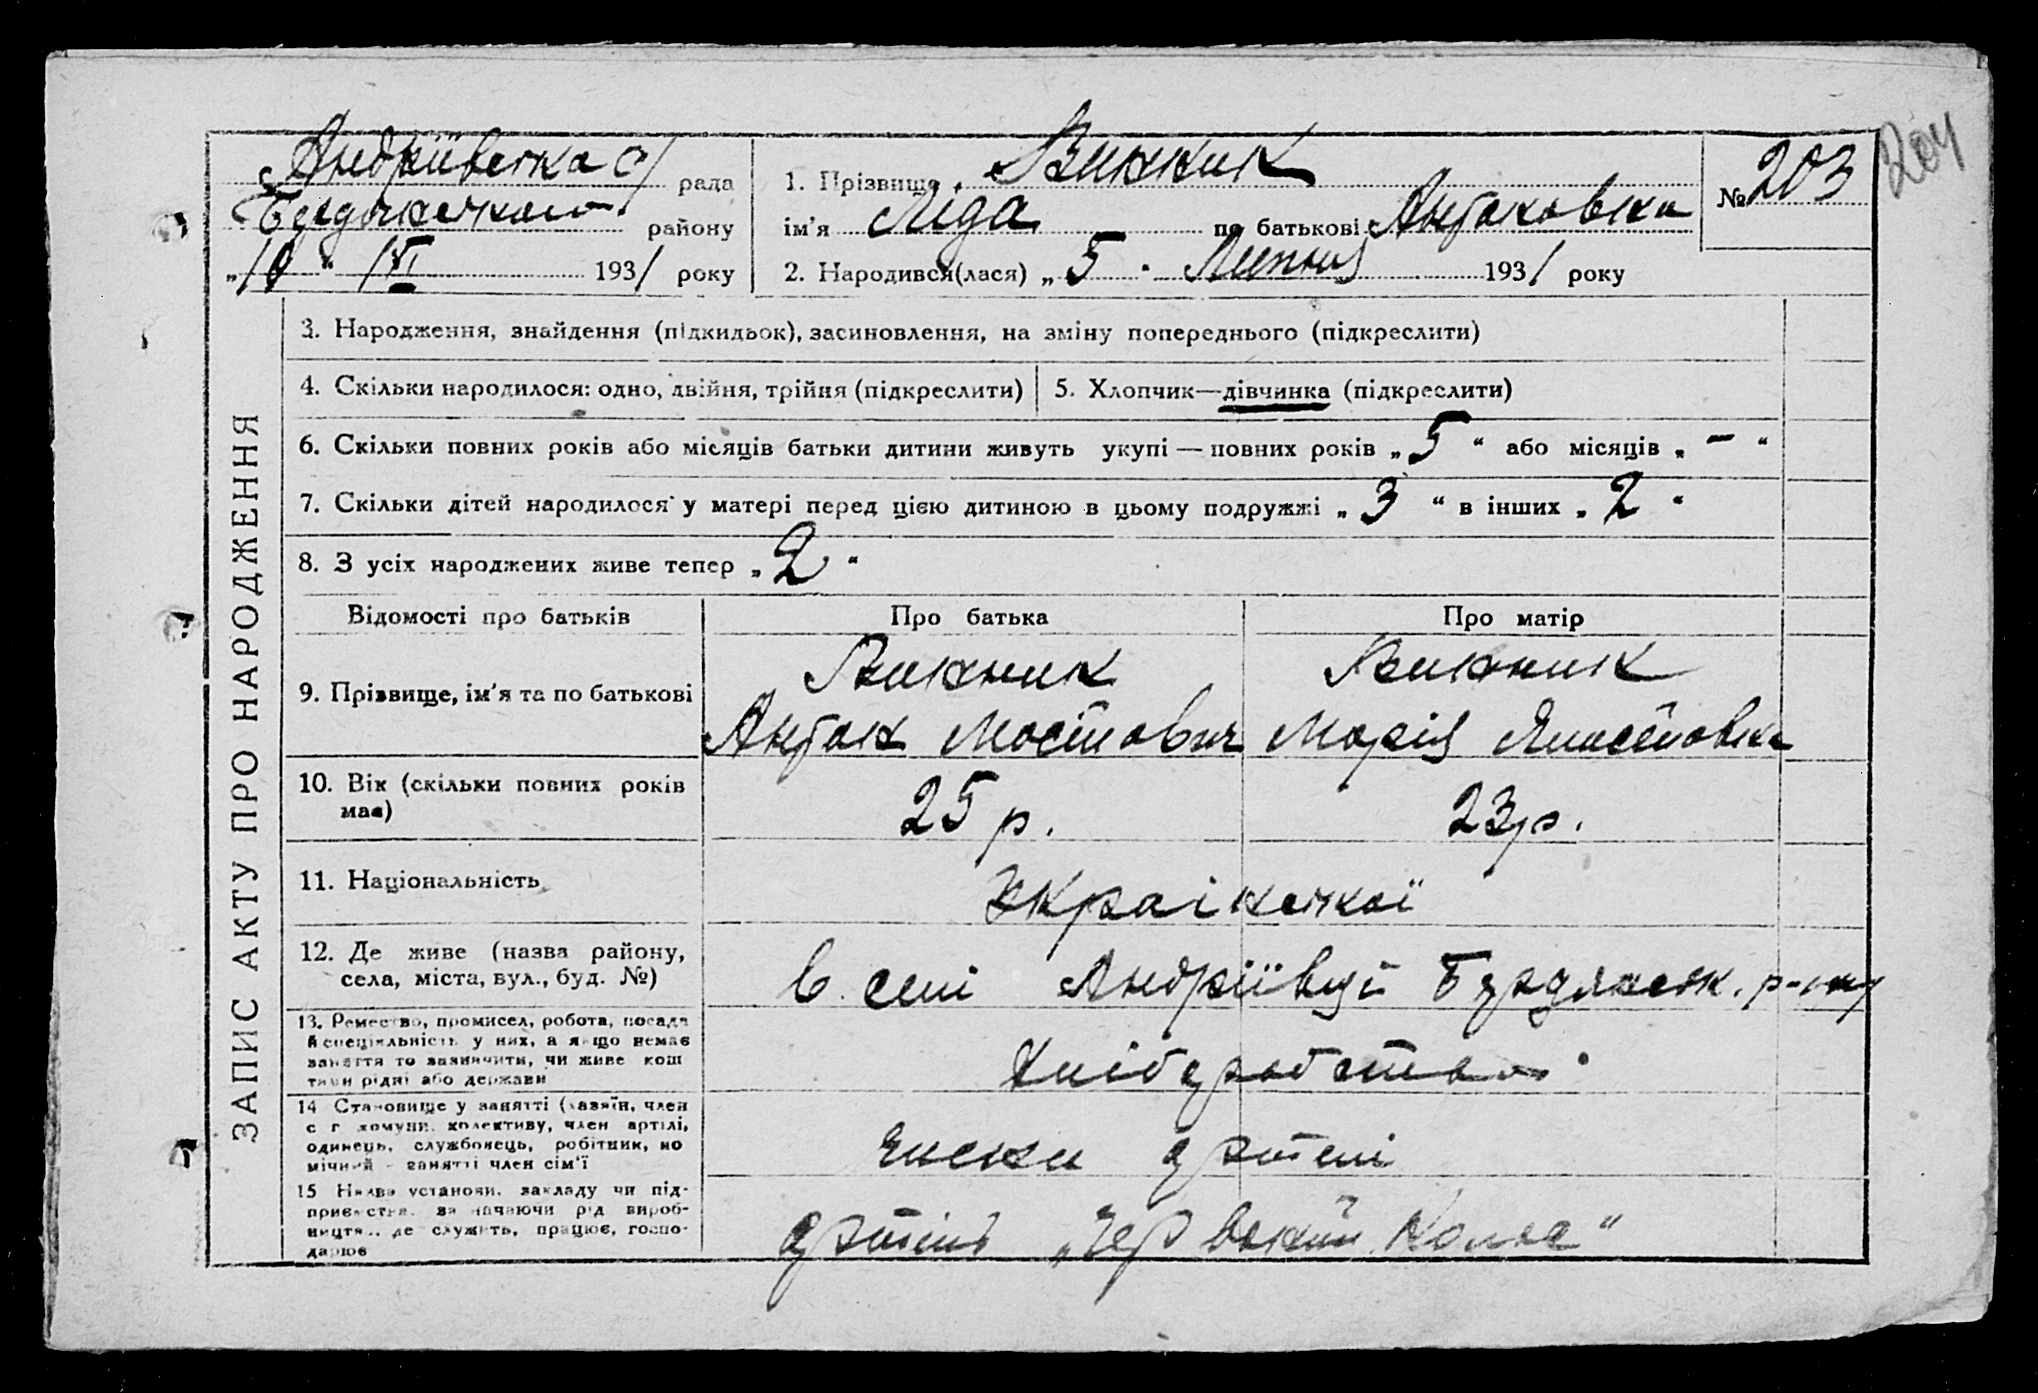 Андріївська с/ рада
Бердянського району
„10“ IX 1931 року
1. Прізвище Винник
ім'я Ліда по батькові Антоновна
2. Народився(лася) „5“ Липня 1931 року
№ 203
204
ЗАПИС АКТУ ПРО НАРОДЖЕННЯ
3. Народження, знайдення (підкидьок), засиновлення, на зміну попереднього (підкреслити)
4. Скільки народилося: одно, двійня, трійня (підкреслити)
5. Хлопчик—дівчинка (підкреслити)
6. Скільки повних років або місяців батьки дитини живуть укупі — повних років „5“ або місяців „–“
7. Скільки дітей народилося у матері перед цією дитиною в цьому подружжі „3“ в інших „2“
8. З усіх народжених живе тепер „2“
Відомості про батьків
Про батька
Про матір
9. Прізвище, ім'я та по батькові
Винник
Антон
Винник
Марія
10. Вік (скільки повних років
має)
25 р.
23 р.
11. Національність
Украінської
12. Де живе (назва району,
села, міста, вул., буд. №)
в селі Андріївці Бердянськ. р-ну
13. Ремество, промисел, робота, посада
й спеціяльність у них, а якщо немає
заняття то зазначити, чи живе кош
тами рідні або держави
Хліборобство
14 Становище у занятті (хазяїн, член
с г комуни, колективу, член артілі,
одинець, службовець, робітник, по
мічний в занятті член сім'ї
члени артелі
15 Назва установи, закладу чи під-
приємства, зазначаючи рід вироб-
ництва, де служить, працює, госпо-
дарює
артіль „Червоний Колос“